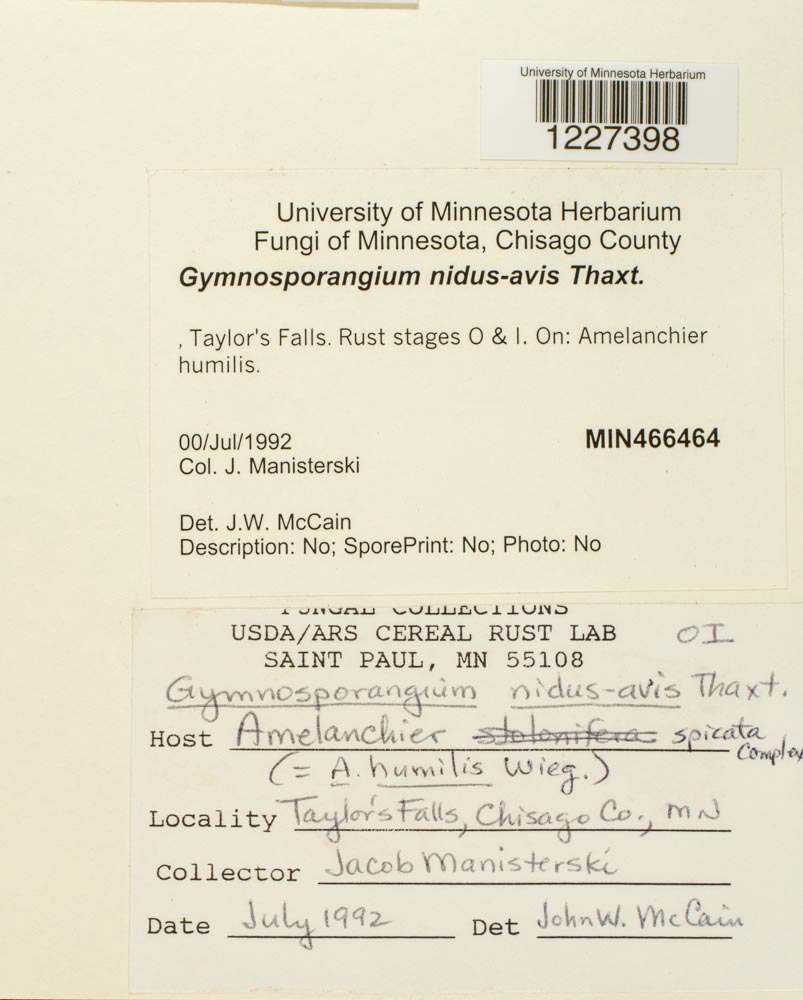 University of Minnesota Herbarium
1227398
University of Minnesota Herbarium
Fungi of Minnesota, Chisago County
Gymnosporangium nidus-avis Thaxt.
, Taylor's Falls. Rust stages O & I. On: Amelanchier
humilis.
00/Jul/1992
MIN466464
Col. J. Manisterski
Det. J.W. McCain
Description: No; SporePrint: No; Photo: No
FUNGAL COLLECTIONS
USDA/ARS CEREAL RUST LAB OI
SAINT PAUL, MN 55108
Gymnosporangium nidus-avis Thaxt.
Host Amelanchier stolonifera spicata
complex
(= A. humilis Wieg.)
Locality Taylor's Falls, Chisago Co., MN
Collector Jacob Manisterski
Date July 1992 Det John W. McCain